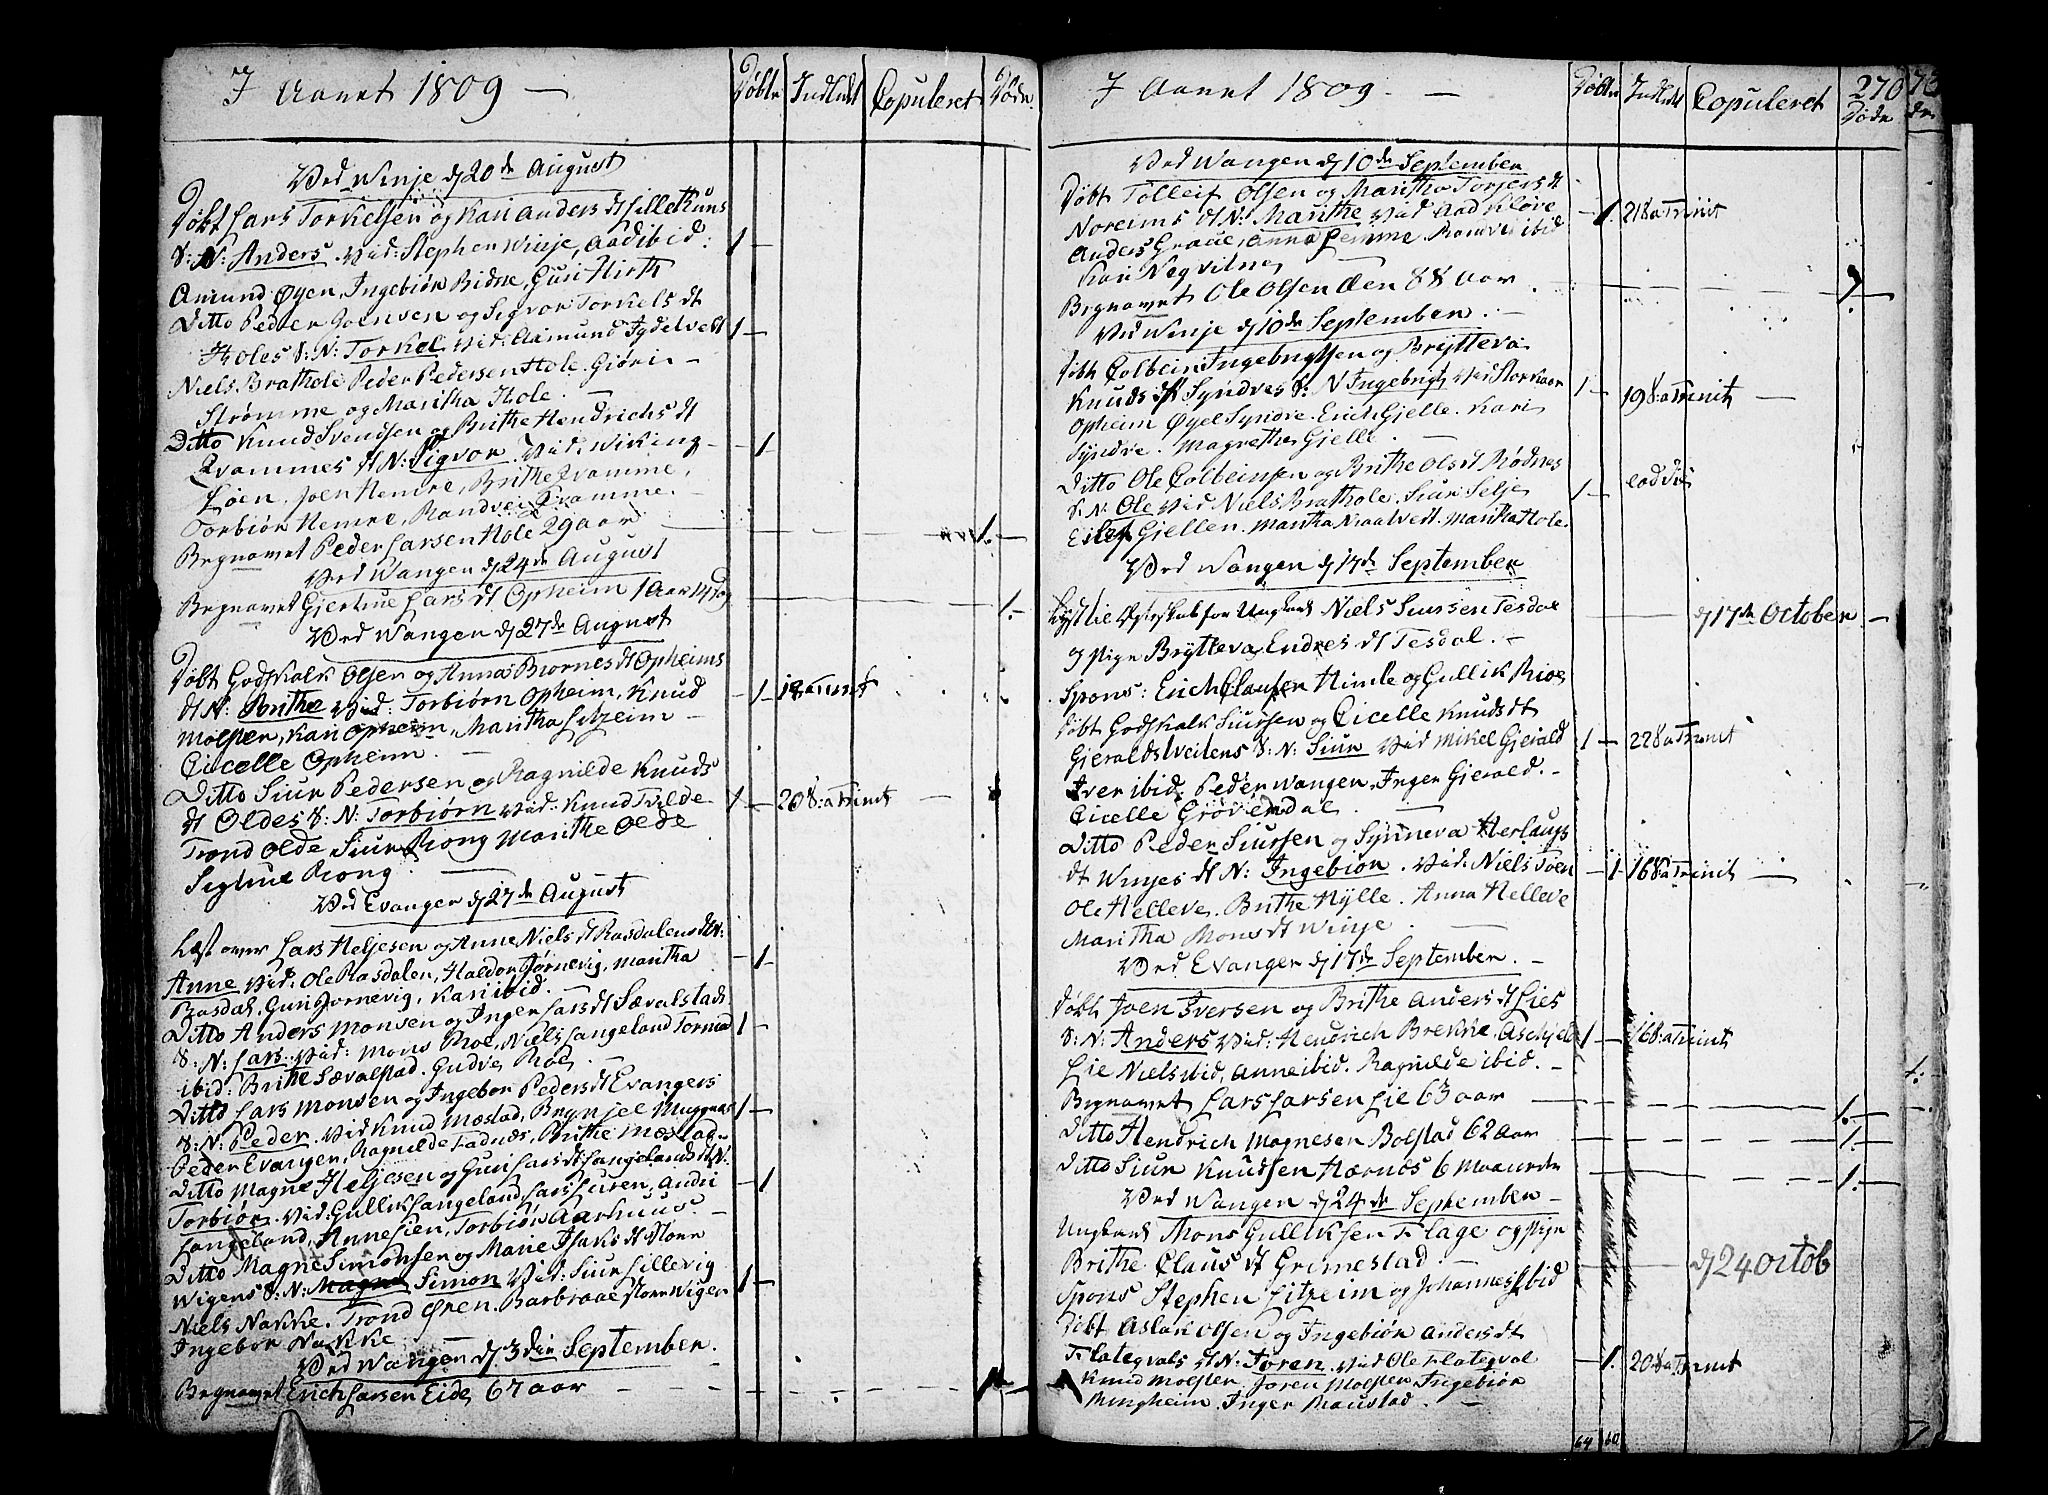 I Aaret 1809 — Døbte Indledt Copuleret Døde
Ved Winje d 20de August
Døbt Lars Torkelsen og Kari Anders dt Lillethuns
S: N: Anders. Vid: Stephen Winje, Aad ibid: 1 —
Amund Øyen, Ingebiør Bidne, Guri Hirth
Ditto Peder Joensen og Sigvor Torkels dt
Holes S: N: Torkel Vid: Aamund Jydelvedt 1 —
Niels Brathole Peder Pedersen Hole. Giøri
Strømme og Maritha Hole.
Ditto Knud Svendsen og Brithe Hendrichs dt
Qvammes dt N: Sigvor. Vid: Wiking — 1
Løen, Joen Hemre, Brithe Qvamme,
Torbiør Hemre, Randvei Qvamme.
Begravet Peder Larsen Hole 29 aar — 1. —
Ved Wangen d 24de August
Begravet Giertrue Lars dt Opheim 1 Aar 14 dag — 1. —
Ved Wangen d 27de August
Døbt Godskalk Olsen og Anna Biørnes dt Opheims
dt N: Brithe Vid: Torbiørn Opheim, Knud — 1 — 18 a Trinit
Mølster, Kari Opheim, Maritha Litzeim —
Cicelle Opheim. —
Ditto Siur Pedersen og Ragnilde Knuds
dt Oldes S: N: Torbiørn Vid: Knud Tvilde 1 — 20 S: a Trinit —
Trond Olde Siur Rong Marithe Olde
Sigtrue Rong. —
Ved Evanger d 27de August
Læst over Lars Heljesen og Anne Niels dt Rasdalens dt N:
Anne Vid: Ole Rasdalen, Haldor Jørnevig, Maritha — 1 —
Rasdal, Guri Jørnevig, Kari ibid.
Ditto Anders Monsen og Inger Lars dt Sævalstads
S: N: Lars. Vid: Mons Roe, Niels Langeland Tormo 1 —
ibid: Brithe Sævalstad. Gudve Roe.
Ditto Lars Monsen og Ingebor Peders dt Evangers
S: N: Peder. Vid Knud Mæstad, Brynjel Muggaas 1 —
Peder Evanger, Ragnilde Fadnæs, Brithe Mæstad
Ditto Magne Heljesen og Guri Lars dt Langelands dt N.
Torbiør. Vid: Gullik Langeland Lars — 1
Langeland, Anne Lien, Torbiør Aarhuus.
Ditto Magne Simonsen og Marie Isaks dt Store
Wigens S: N: Simon Vid: Siur Lillevig 1 —
Niels Nakke. Trond Øren. Barbraae Store Wigen
Ingebor Nakke
Ved Wangen d 3die September.
Begravet Erich Larsen Eide 67 aar — 1 —
I Aaret 1809 — Døbte Indledt Copuleret 270 Døde
Ved Wangen d 10de September
Døbt Tolleif Olsen og Maritha Torjers dt
Noreims dt N: Marithe Vid Aad Kløve — 1. 21 S a Trinit
Anders Graue, Anna Lemme. Randve ibid
Kari Neqvitne
Begravet Ole Olsen Een 88 aar. — 1 —
Ved Winje d 10de September. —
Døbt Colbein Ingebrigtsen og Brytteva
Knuds dt Syndves S: N Ingebrigt Vid Storkaar 1 — 19 S: a Trinit —
Opheim Øyel Syndve. Erich Gjelle. Kari
Syndve. Magrethe Gjelle.
Ditto Ole Colbeinsen og Brithe Ols dt Rødnes
S: N: Ole Vid Niels Brathole. Siur Selje 1 — eod die
Eilef Gjellen. Maritha Niaalvedt. Maritha Hole.
Ved Wangen d 17de September
Lyst til Egteskab for Ungkarl Niels Siursen Tesdal — d 17de October —
og Pige Brytteva Endres dt Tesdal. —
Spons: Erich Clausen Himle og Gullik Rioe
Døbt Godskalk Siursen og Cicelle Knuds dt
Gjeraldstveitens S: N: Siur Vid Mikel Gjerald 1 — 22 S a Trinit
Iver ibid Peder Wangen, Inger Gjerald. —
Cicelle Grøvendal
Ditto Peder Siursen og Synneva Herlaugs
dt Winjes dt N: Ingebiør. Vid: Niels Tøen — 1 — 16 S: a Trinit —
Ole Helleve. Brithe Hylle. Anna Helleve
Maritha Mons dt Winje.
Ved Evanger d 17de September. —
Døbt Joen Iversen og Brithe Anders dt Lies
S: N: Anders Vid: Hendrich Brekke, Aschjel 1 — 16 S: a Trinit
Lie Niels ibid, Anne ibid. Ragnilde ibid. —
Begravet Lars Larsen Lie 63 aar — 1. —
Ditto Hendrich Magnesen Bolstad 62 Aar — 1. —
Ditto Siur Knudsen Hærnæs 6 Maaneder — 1. —
Ved Wangen d 24de September —
Ungkarl Mons Gulliksen Flage og Pige
Brithe Claus dt Grimestad. — d 24 Octob
Spons Stephen Litzeim og Johannes ibid
Døbt Aslak Olsen og Ingebiør Anders dt
Flateqvals dt N: Joren. Vid Ole Flateqval — 1. 20 S a Trinit
Knud Mølster Joren Mølster Ingebiør
Mongheim. Inger Raustad. —
64 60